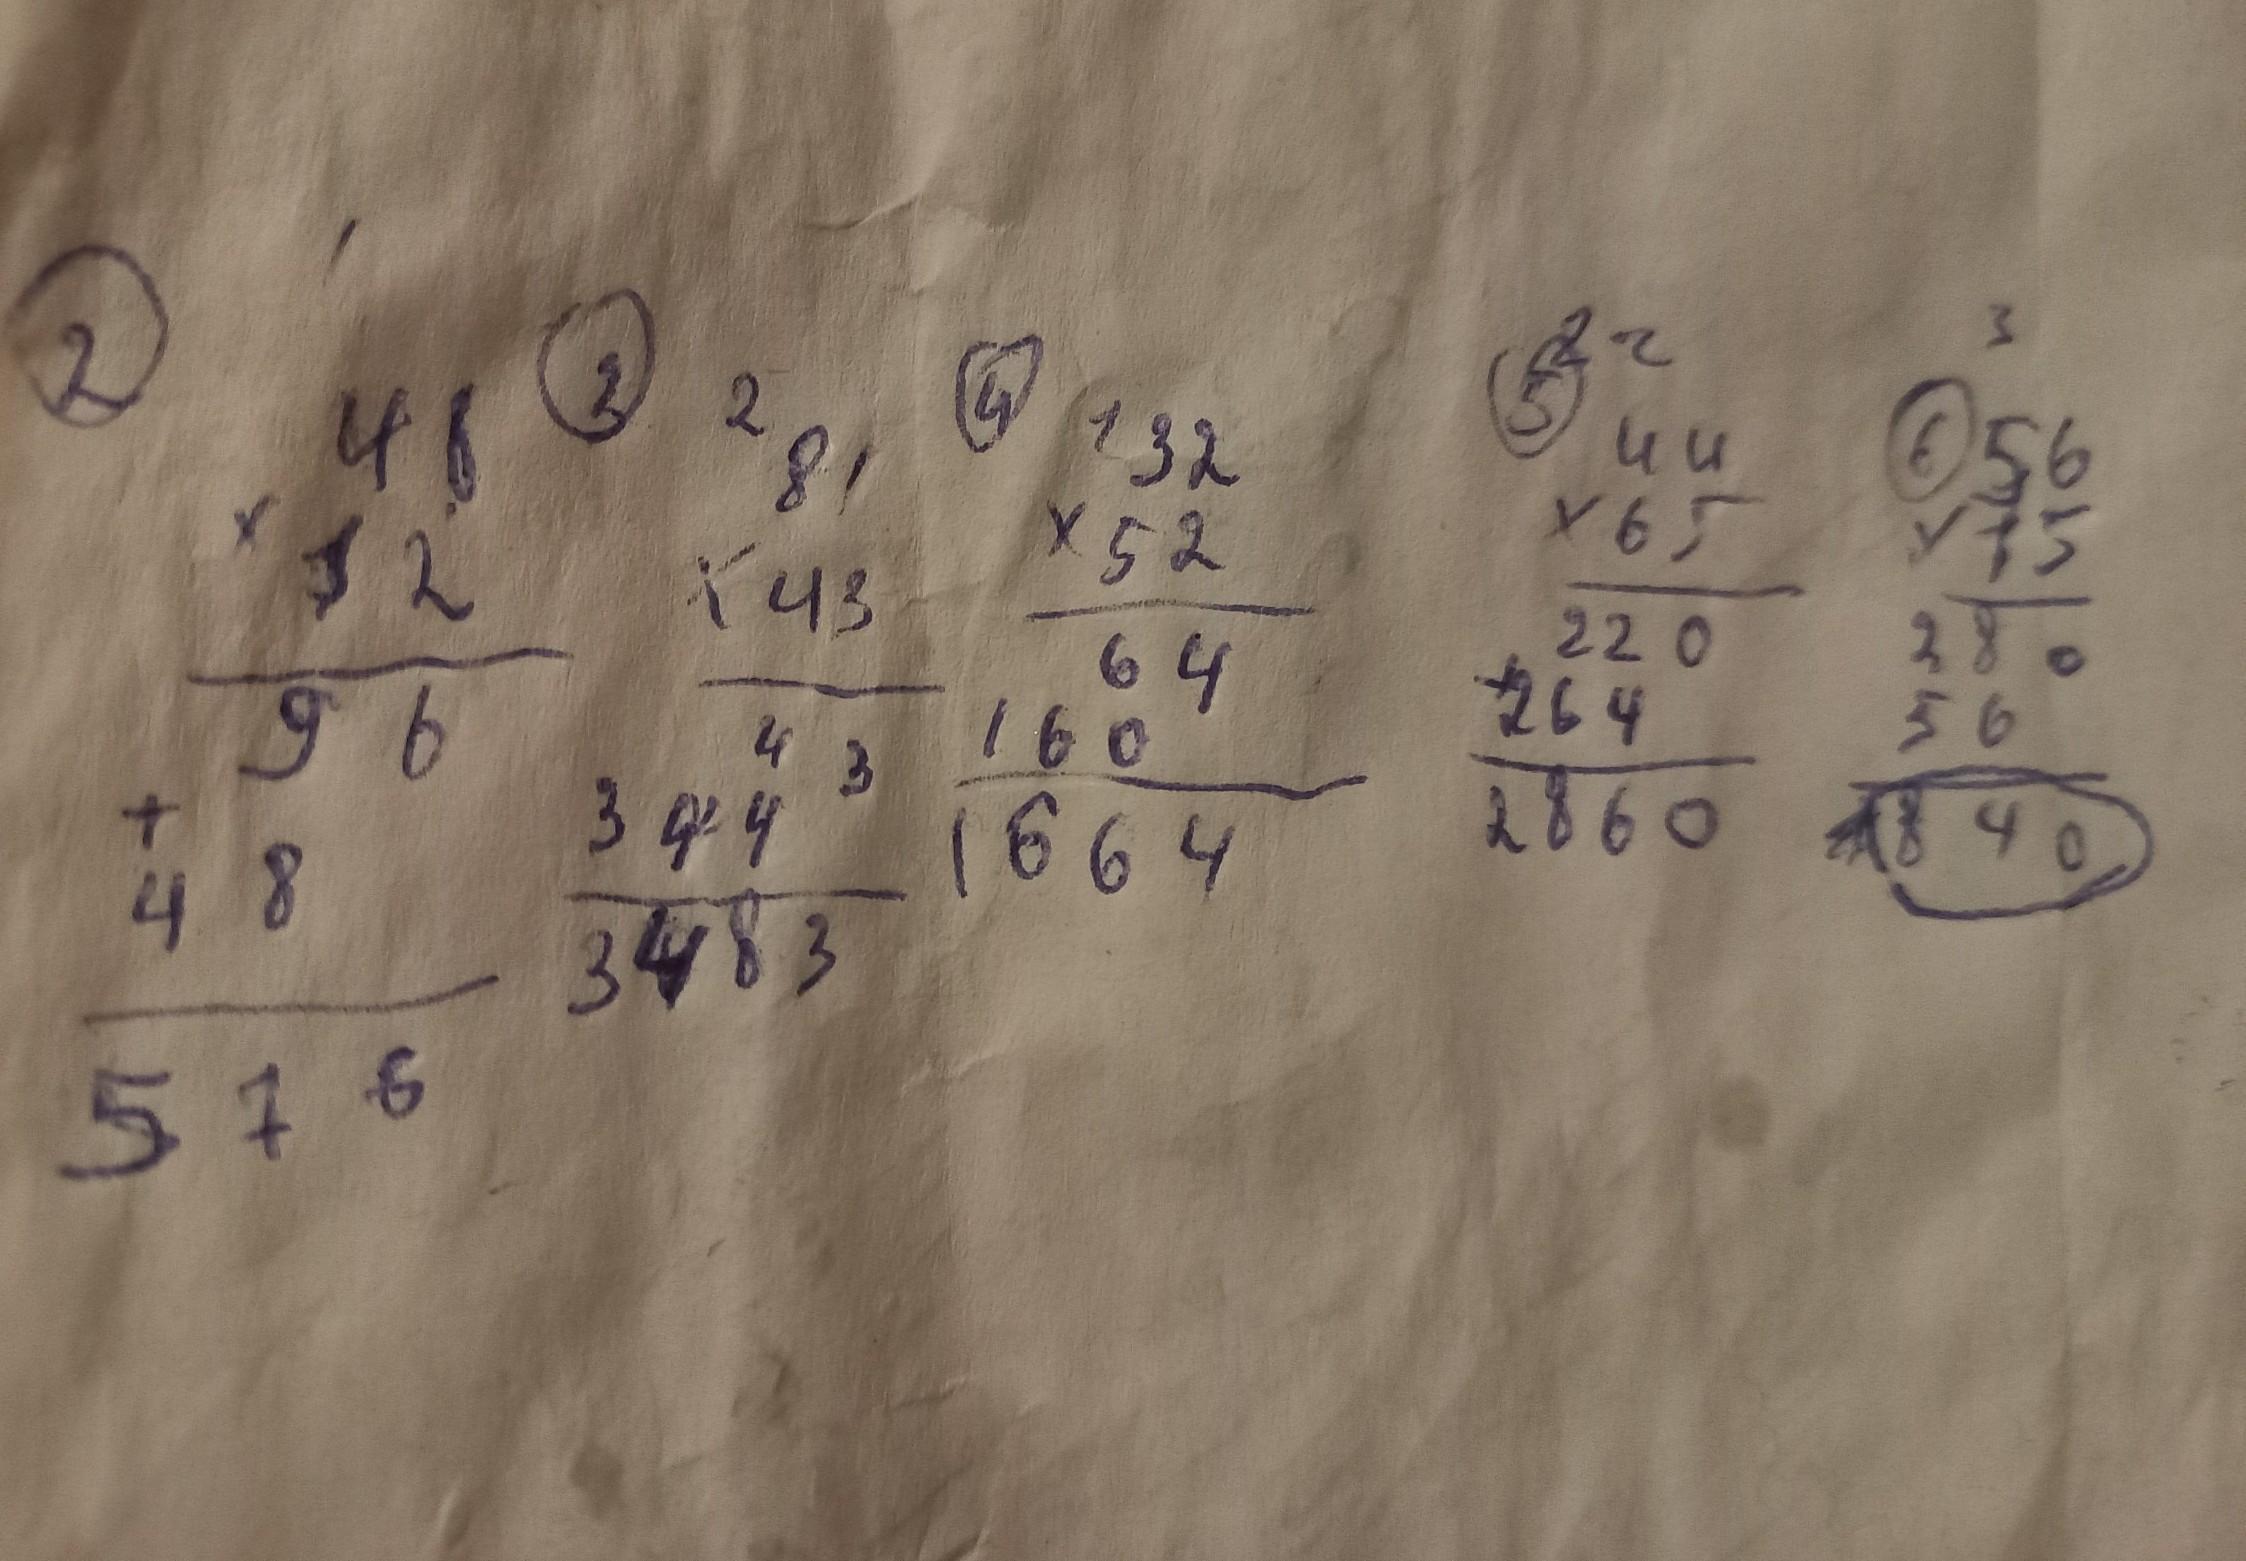 ②
1
48
× 12
96
+
48
576
③
2
81
× 43
43
344
3483
④
1
32
× 52
64
160
1664
⑤
22
44
× 65
220
+264
2860
⑥
3
56
× 15
280
56
840